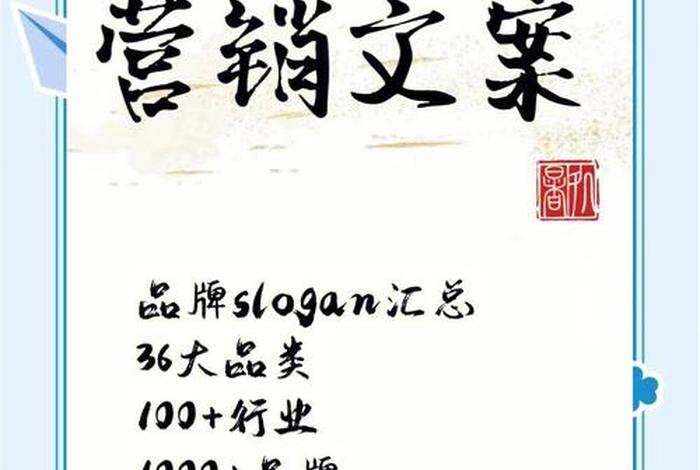 营销文案
品牌slogan汇总
36大品类
100+行业
1000+品牌